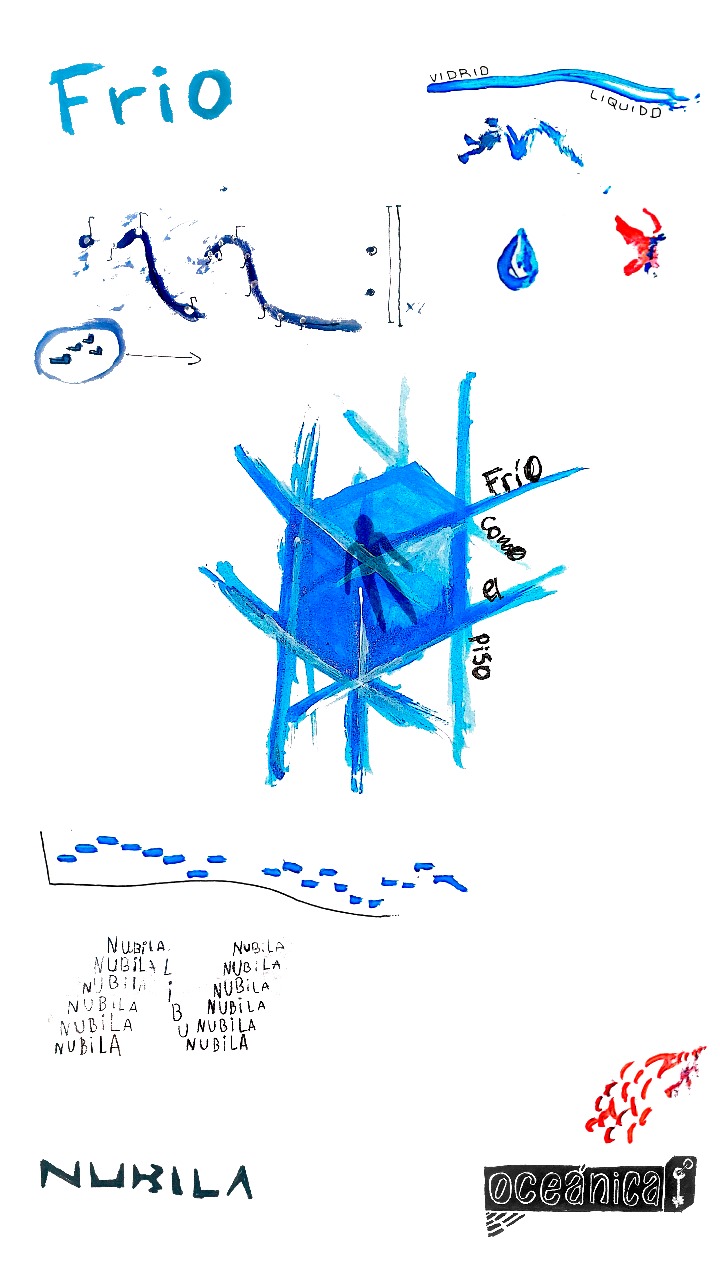 Frio
VIDRIO
LIQUIDO
Frío
como
el
piso
NUBiLA NUBiLA
NUBiLA L NUBiLA
NUBiLA i NUBiLA
NUBiLA B NUBiLA
NUBiLA U NUBiLA
NUBiLA NUBiLA
NUBILA
oceánica